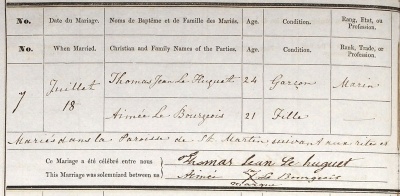 No. Date du Mariage. Noms de Baptême et de Famille des Mariés. Age. Condition. Rang, Etat, ou Profession.
No. When Married. Christian and Family Names of the Parties. Age. Condition. Rank, Trade, or Profession.
7 Juillet 18 Thomas Jean Le Huquet 24 Garçon Marin
Aimée Le Bourgeois 21 Fille
Mariés dans la Paroisse de St. Martin suivant aux rites et
Ce Mariage a été célébré entre nous Thomas Jean Le huquet
This Marriage was solemnized between us Aimée X Le Bourgeois
marque